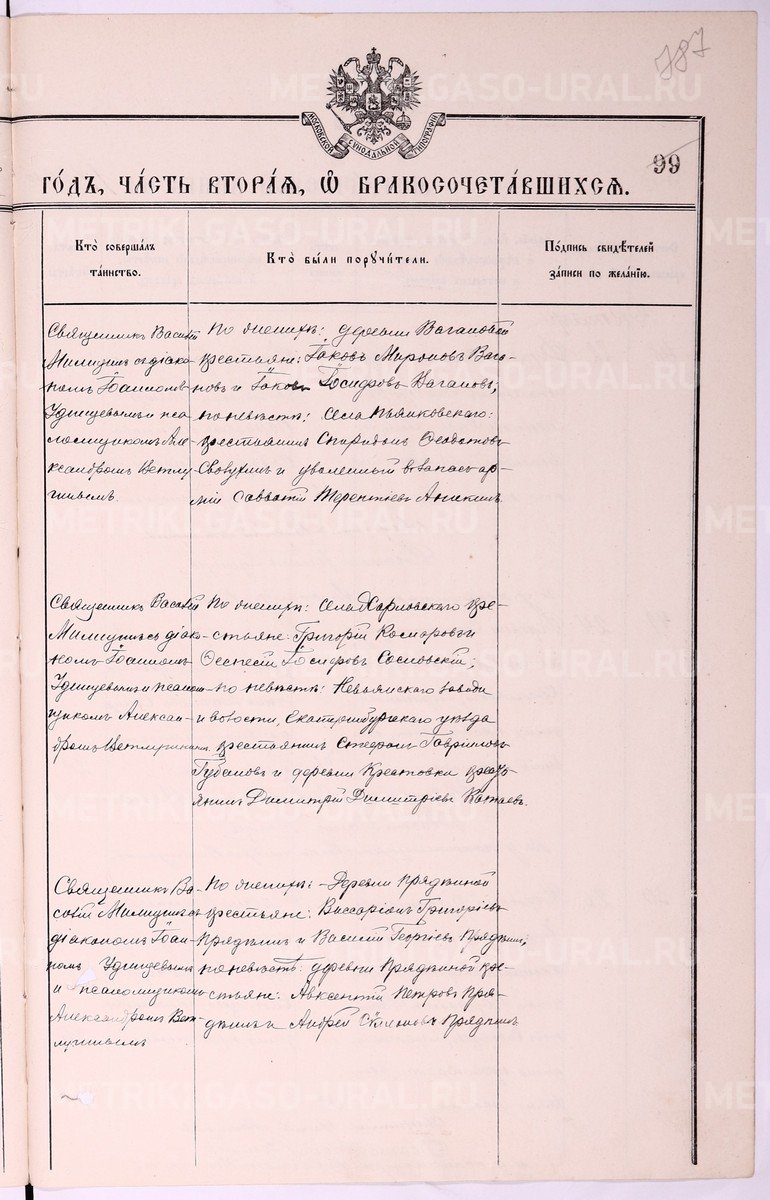 787
МОСКОВСКОЙ СѴНОДАЛЬНОЙ ТИПОГРАФІИ
99
го́дъ, ча́сть втора́ѧ, ѡ҆ бракосочета́вшихсѧ.
Кто̀ совершалъ
та́инство.
Кто̀ бы́ли порꙋчи́тели.
По́дпись свидѣ́телей
за́писи по жела́нїю.
Священникъ Василій
съ діако-
номъ Іоанномъ
Удинцевымъ и пса-
ломщикомъ Але-
ксандромъ Ветлу-
гинымъ
По женихѣ: деревни Вагановой
крестьяне: Іаковъ Мироновъ Вага-
новъ и Іаковъ Іосифовъ Вагановъ;
по невѣстѣ: села Пьянковскаго:
крестьянинъ Спиридонъ Ѳеодотовъ
и уволенный въ запасъ ар-
міи Савватій Терентіевъ Аникинъ
Священникъ Василій
съ діако-
номъ Іоанномъ
Удинцевымъ и псалом-
щикомъ Алексан-
дромъ Ветлугинымъ
По женихѣ: села Харловскаго кре-
стьяне: Григорій и
Іосифовъ Сосновскій;
по невѣстѣ: Невьянскаго завода
и волости, Екатеринбургскаго уѣзда
крестьянинъ Стефанъ Гавриловъ
Губановъ и деревни кресть-
янинъ Димитрій Димитріевъ
Священникъ Ва-
силій съ
діакономъ Іоан-
номъ Удинцевымъ
и псаломщикомъ
Александромъ Вет-
лугинымъ
По женихѣ: Деревни Прядкиной
крестьяне: Виссаріонъ Григоріевъ
Прядкинъ и Василій Георгіевъ Прядкинъ;
по невѣстѣ: деревни Прядкиной кре-
стьяне: Авксентій Петровъ Пря-
дкинъ и Андрей Прядкинъ
METRIKI.GASO-URAL.RU